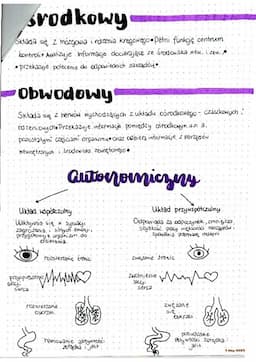 Ośrodkowy
Składa się z mózgowia i rdzenia kręgowego • Pełni funkcję centrum
kontroli • Analizuje informacje docierające ze środowiska
• przekazuje polecenia do odpowiednich narządów •
Obwodowy
Składa się z nerwów wychodzących z układu ośrodkowego - czaszkowych i
rdzeniowych • Przekazuje informacje pomiędzy ośrodkowym u.n a
pozostałymi częściami organizmu • oraz odbiera informacje z narządów
wewnętrznych i środowiska zewnętrznego •
autonomiczny
Układ współczulny
Układ przywspółczulny
Uaktywnia się w sytuacji
zagrożenia i silnych emocji,
przygotowuje organizm do
działania
Odpowiada za odpoczynek, zmniejsza
szybkość pracy większości narządów
rozszerzenie źrenic
zwężenie źrenic
przyspieszenie
akcji
serca
zwolnienie
akcji
serca
rozszerzenie
oskrzeli
zwężenie
oskrzeli
hamowanie perystaltyki
żołądka i jelit
pobudzanie
perystaltyki
żołądka i jelit